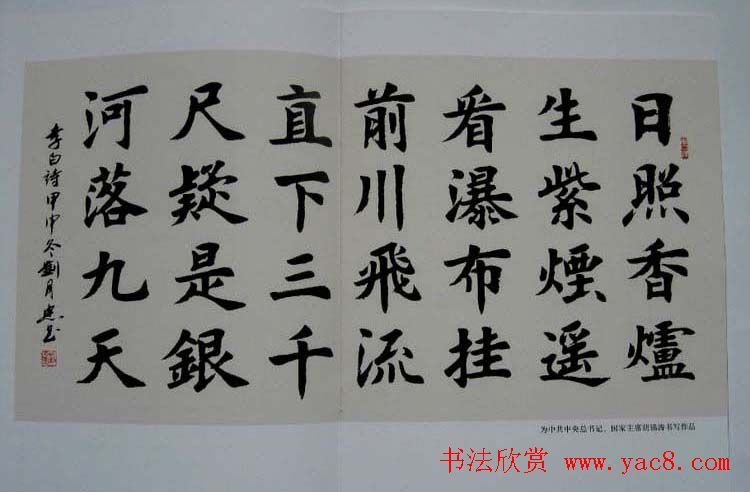 日照香爐
生紫煙遥
看瀑布挂
前川飛流
直下三千
尺疑是銀
河落九天
李白詩甲申冬劉月忠书
为中共中央总书记、国家主席胡锦涛书写作品
书法欣赏 www.yac8.com